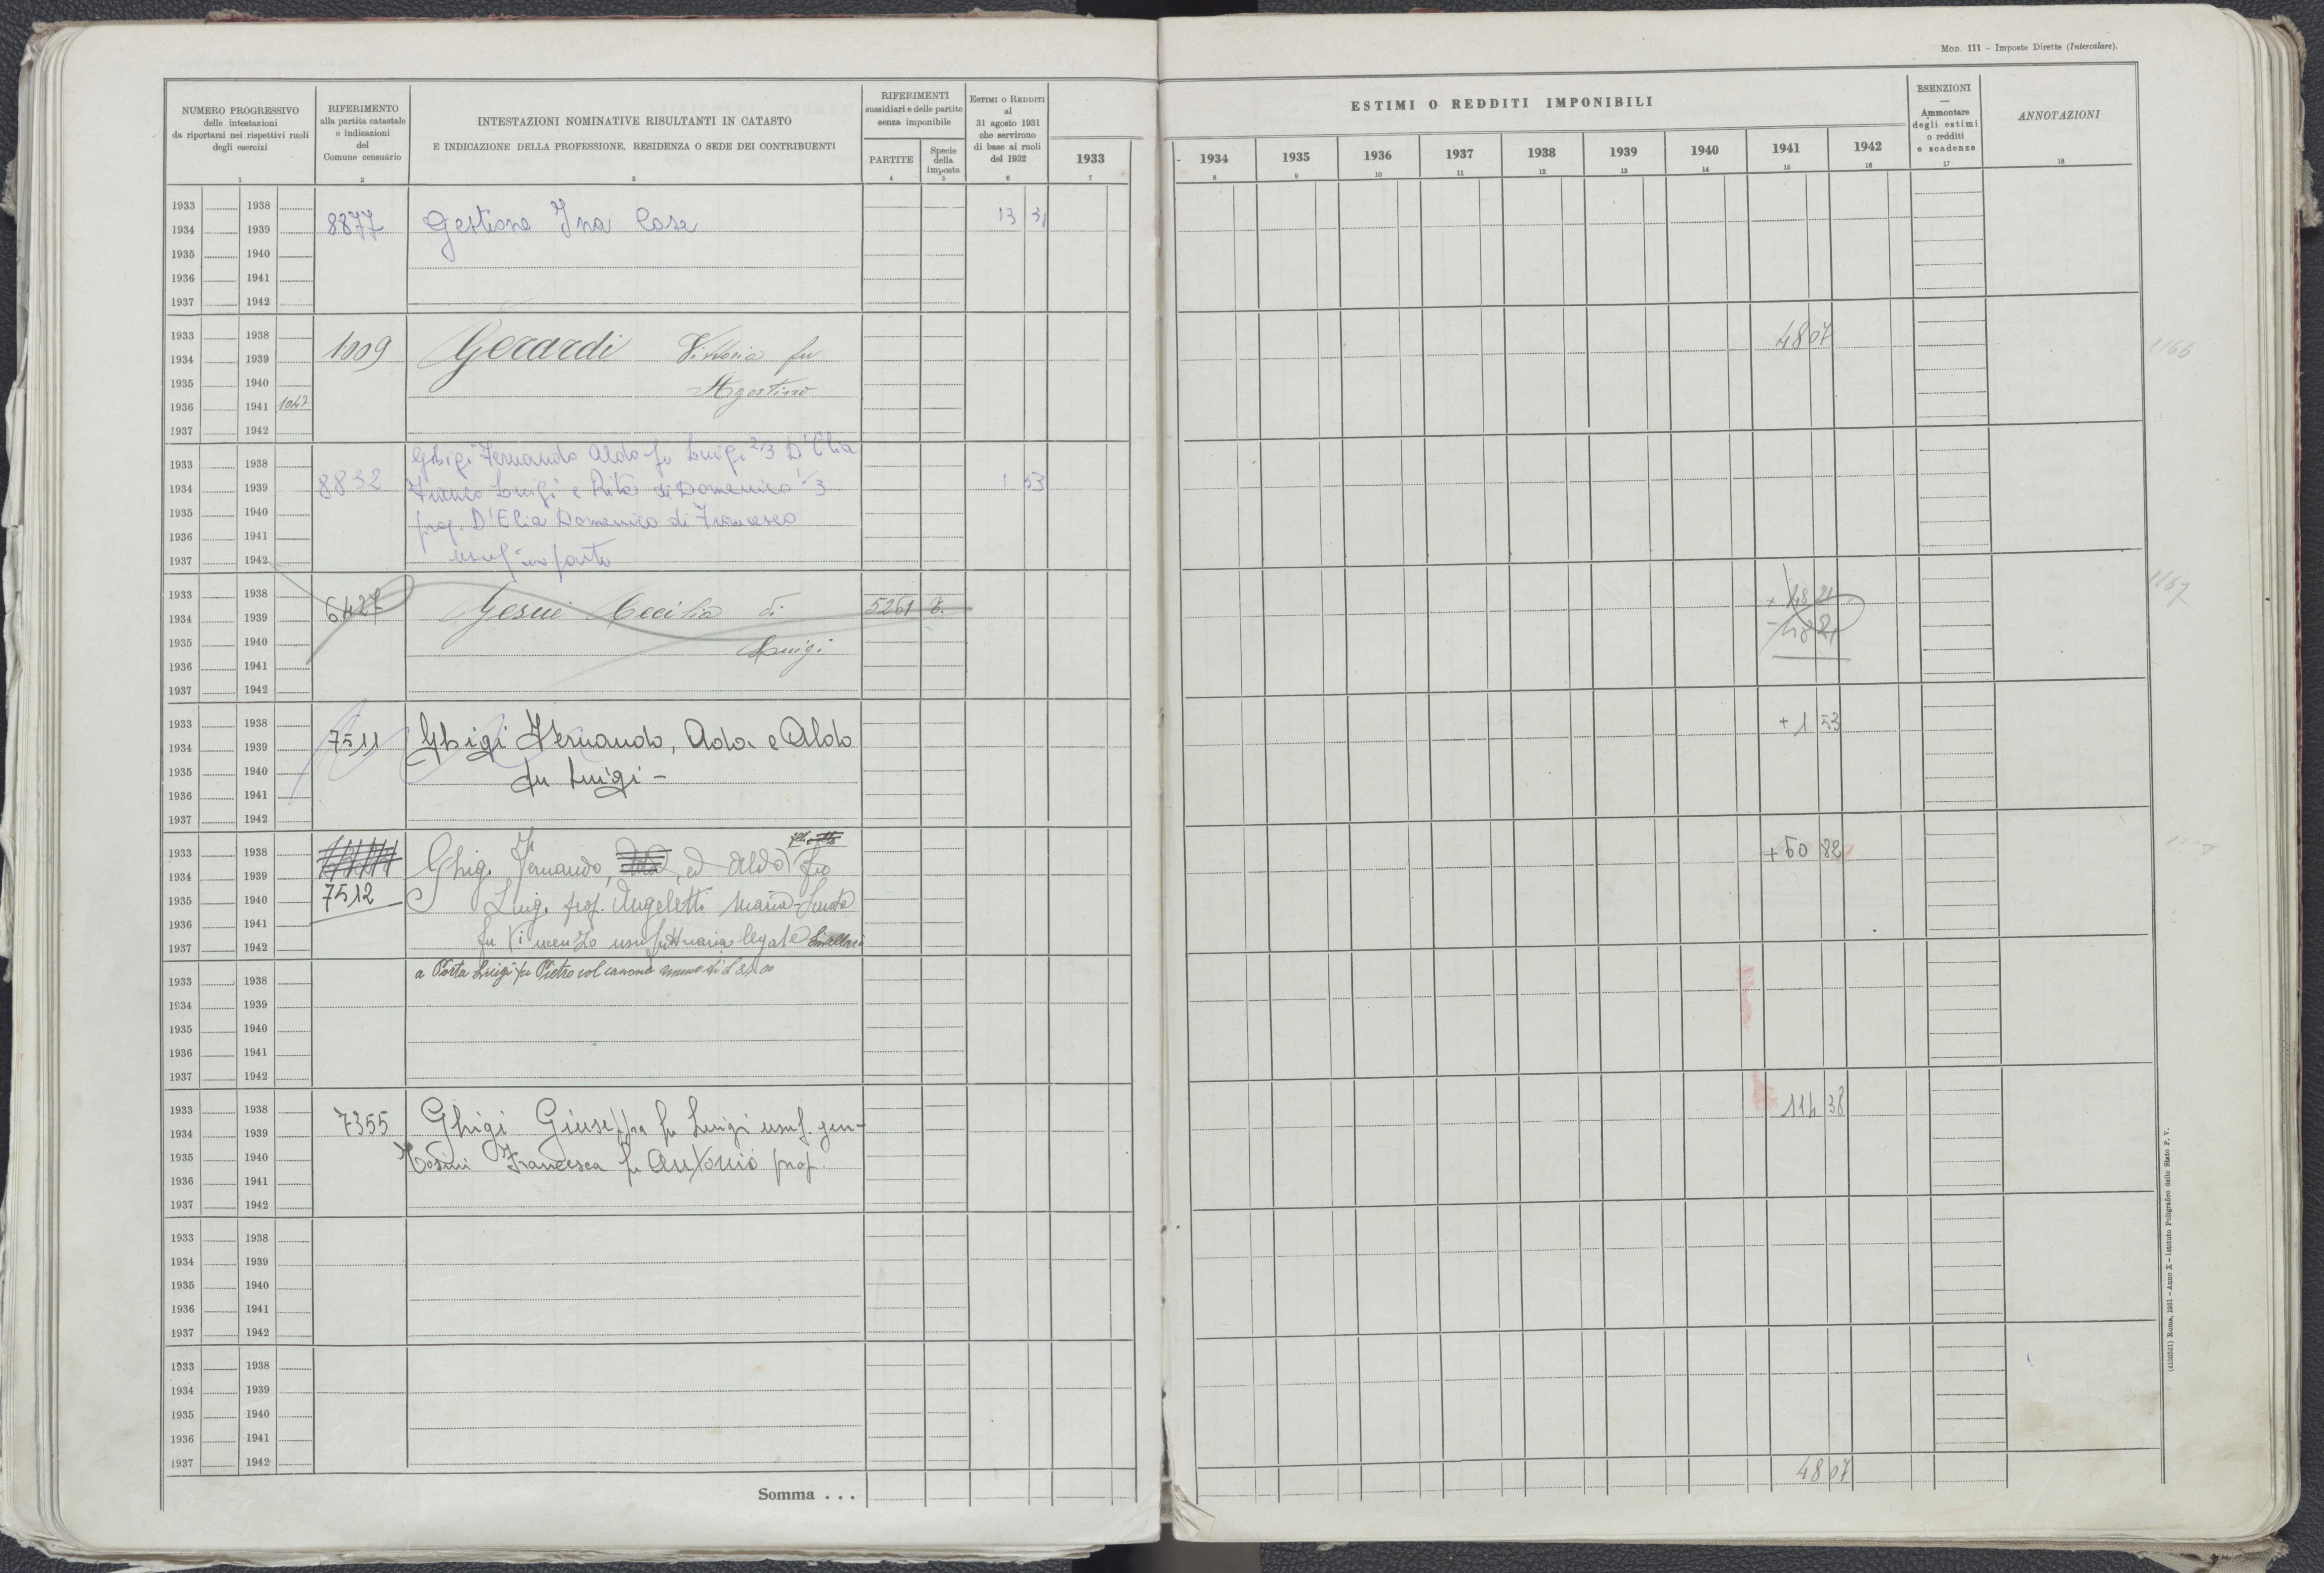 Mod. 111 - Imposte Dirette (Intercalare).
NUMERO PROGRESSIVO
delle intestazioni
da riportarsi nei rispettivi ruoli
degli esercizi
1
RIFERIMENTO
alla partita catastale
o indicazioni
del
Comune censuario
2
INTESTAZIONI NOMINATIVE RISULTANTI IN CATASTO
E INDICAZIONE DELLA PROFESSIONE, RESIDENZA O SEDE DEI CONTRIBUENTI
3
RIFERIMENTI
sussidiari e delle partite
senza imponibile
PARTITE
4
Specie
della
imposta
5
Estimi o Redditi
al
31 agosto 1931
che servirono
di base ai ruoli
del 1932
6
1933
7
ESTIMI O REDDITI IMPONIBILI
1934 1935 1936 1937 1938 1939 1940 1941 1942
8 9 10 11 12 13 14 15 16
ESENZIONI
—
Ammontare
degli estimi
o redditi
e scadenze
17
ANNOTAZIONI
18
1933 1938
1934 1939 8877 Gestione Ina Casa 13 31
1935 1940
1936 1941
1937 1942
1933 1938
1934 1939 1009 Gerardi Vittoria fu 48 07 1166
1935 1940 Agostino
1936 1941 1047
1937 1942
Ghigi Fernando Aldo fu Luigi 2/3 D'Elia
1933 1938
1934 1939 8832 Franco Luigi e Rita di Domenico 1/3 1 53
1935 1940 prop. D'Elia Domenico di Francesco
1936 1941
1937 1942 usuf in parte
1933 1938
1934 1939 6427 Gesui Cecilia di 5261 + 48 21 1167
1935 1940 Luigi - 48 21
1936 1941
1937 1942
1933 1938
1934 1939 7511 Ghigi Fernando, Ada e Aldo + 1 53
1935 1940 fu Luigi -
1936 1941
1937 1942
1933 1938
1934 1939 Ghigi Fernando, ed Aldo fu + 60 82
1935 1940 7512 Luigi prop. Angeletti Maria
1936 1941
1937 1942 fu Vincenzo usufruttuaria legale
1933 1938 a Porta Luigi fu Pietro col canone annuo di L
1934 1939
1935 1940
1936 1941
1937 1942
1933 1938
1934 1939 7355 Ghigi Giuseppa fu Luigi usuf. gen- 114 38
1935 1940 Francesca fu Antonio prop.
1936 1941
1937 1942
1933 1938
1934 1939
1935 1940
1936 1941
1937 1942
1933 1938
1934 1939
1935 1940
1936 1941
1937 1942
Somma . . . 48 07
Roma, 1931 - Anno X - Istituto Poligrafico dello Stato P. V.